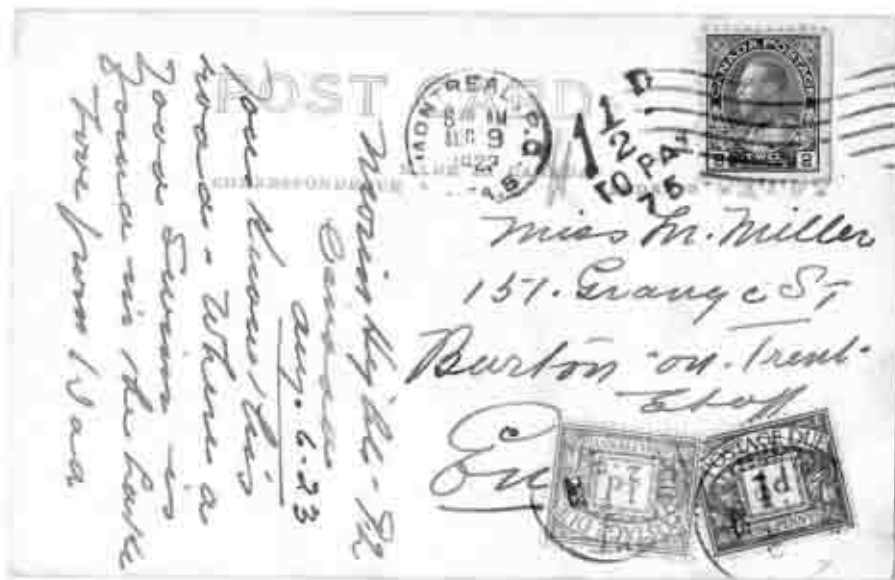 POST CARD
CORRESPONDENCE
MONTREAL, P.Q.
AM
AUG 9
1923
1 1/2 D
TO PAY
75
CANADA POSTAGE
2 TWO 2
CENTS
Miss M. Miller
157. Grange St
Burton-on-Trent
Staff
Eng
POSTAGE DUE
½d
POSTAGE DUE
1d
Morin
Canada
Aug. 6-23
You know this
road - Where a
Good Swim is
found in the Lake
Love from Dad